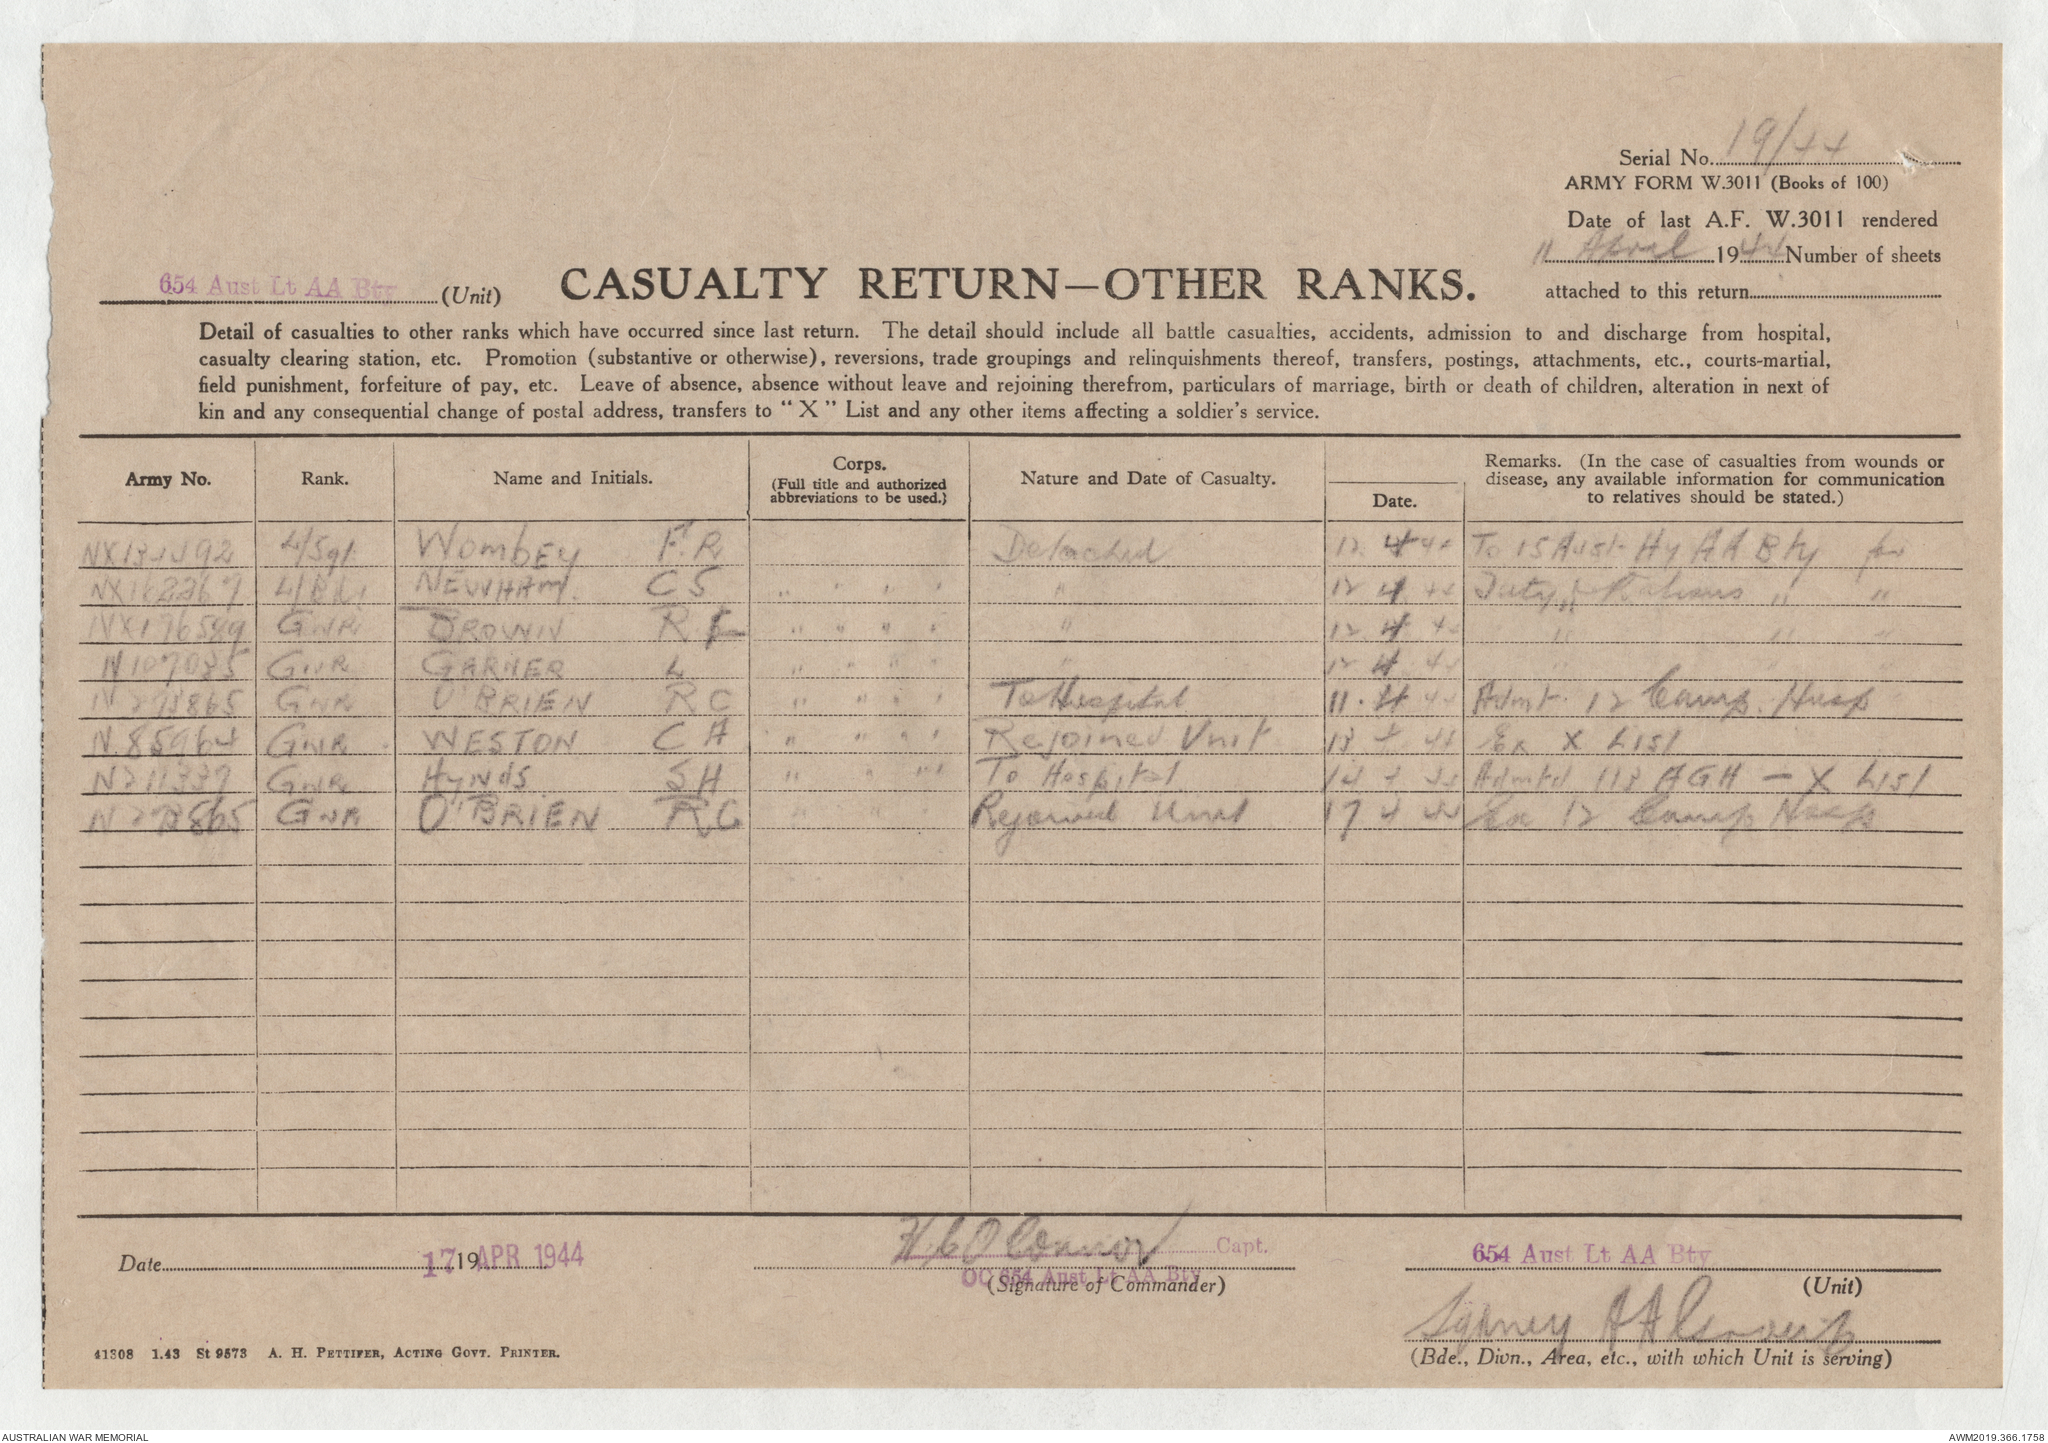 Serial No. 19/44
ARMY FORM W.3011 (Books of 100)
Date of last A.F. W.3011 rendered
11 April 1944 Number of sheets
attached to this return
654 Aust Lt AA Bty (Unit)
CASUALTY RETURN—OTHER RANKS.
Detail of casualties to other ranks which have occurred since last return. The detail should include all battle casualties, accidents, admission to and discharge from hospital,
casualty clearing station, etc. Promotion (substantive or otherwise), reversions, trade groupings and relinquishments thereof, transfers, postings, attachments, etc., courts-martial,
field punishment, forfeiture of pay, etc. Leave of absence, absence without leave and rejoining therefrom, particulars of marriage, birth or death of children, alteration in next of
kin and any consequential change of postal address, transfers to "X" List and any other items affecting a soldier's service.
Army No. Rank. Name and Initials. Corps. (Full title and authorized abbreviations to be used.) Nature and Date of Casualty. Date. Remarks. (In the case of casualties from wounds or disease, any available information for communication to relatives should be stated.)
L/Sgt. WOMBEY F.R Detached 12 4 44 To 15 Aust Hy AA Bty for
NEWHAM. C S " " " " " 12 4 44 Duty & Rations " "
GNR BROWN R " " " " " 12 4 44 " " "
N107035 GNR GARNER L " " " " " 12 4 44 " " "
GNR O'BRIEN R C " " " " To Hospital 11.4 44 Admt. 12 Camp Hosp
N.85964 GNR WESTON C H " " " " Rejoined Unit 13 4 44 Ex X List
N211337 GNR HYNDS S H " " " " To Hospital 14 4 44 Admtd 113 AGH — X List
GNR O'BRIEN R C " " " Rejoined Unit 17 4 44 Ex 12 Camp Hosp
Date 17 19 APR 1944
H C O'Connor Capt.
OC 654 Aust Lt AA Bty
(Signature of Commander)
654 Aust Lt AA Bty
(Unit)
Sydney AA Group
(Bde., Divn., Area, etc., with which Unit is serving)
41308 1.43 St 9573 A. H. PETTIFER, ACTING GOVT. PRINTER.
AUSTRALIAN WAR MEMORIAL
AWM2019.366.1758